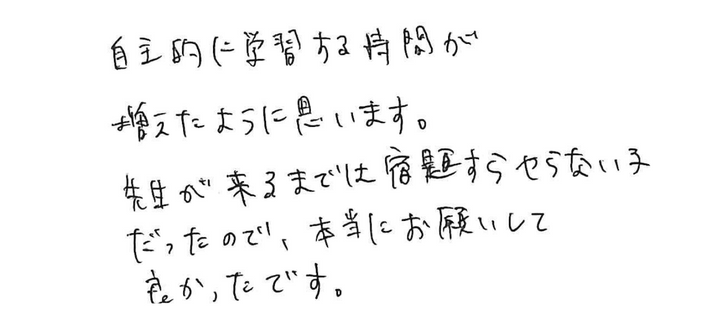 自主的に学習する時間が
増えたように思います。
先生が来るまでは宿題すらやらない子
だったので、本当にお願いして
良かったです。